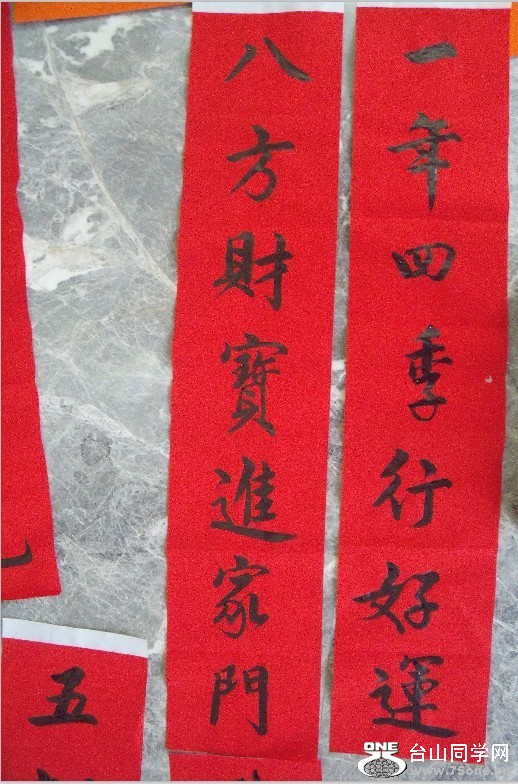 一年四季行好運
八方財寶進家門
五
ONE 台山同学网